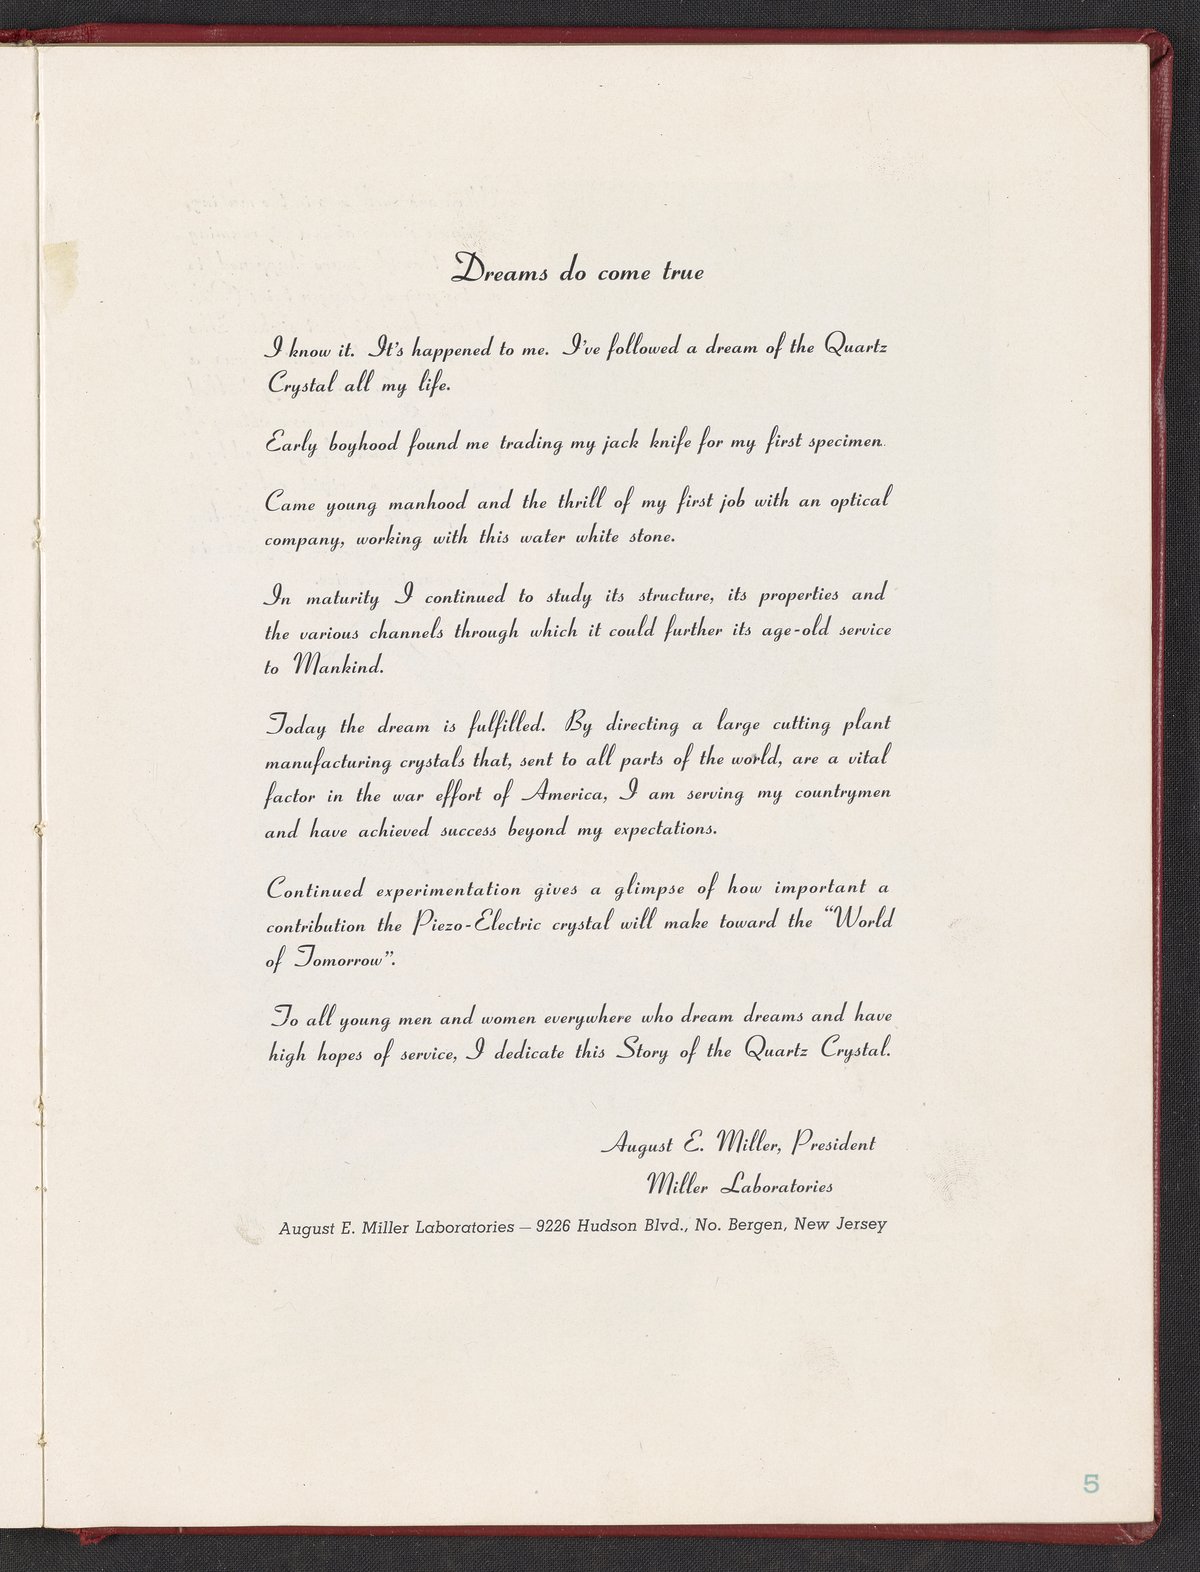 Dreams do come true
I know it. It's happened to me. I've followed a dream of the Quartz
Crystal all my life.
Early boyhood found me trading my jack knife for my first specimen.
Came young manhood and the thrill of my first job with an optical
company, working with this water white stone.
In maturity I continued to study its structure, its properties and
the various channels through which it could further its age-old service
to Mankind.
Today the dream is fulfilled. By directing a large cutting plant
manufacturing crystals that, sent to all parts of the world, are a vital
factor in the war effort of America, I am serving my countrymen
and have achieved success beyond my expectations.
Continued experimentation gives a glimpse of how important a
contribution the Piezo-Electric crystal will make toward the "World
of Tomorrow".
To all young men and women everywhere who dream dreams and have
high hopes of service, I dedicate this Story of the Quartz Crystal.
August E. Miller, President
Miller Laboratories
August E. Miller Laboratories — 9226 Hudson Blvd., No. Bergen, New Jersey
5